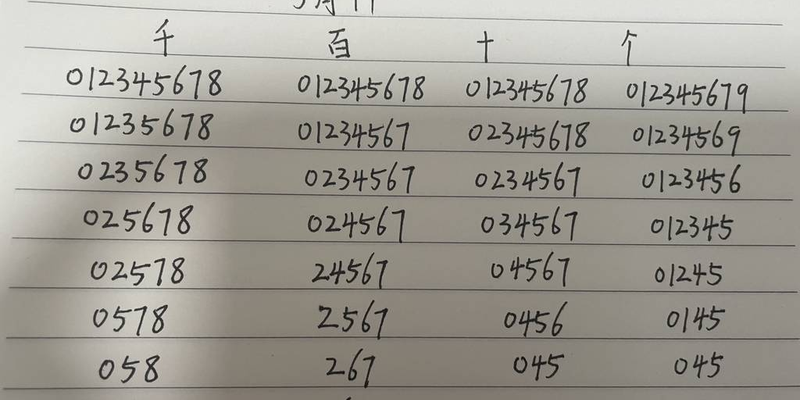 千 百 十 个
012345678 012345678 012345678 012345679
01235678 01234567 02345678 01234569
0235678 0234567 0234567 0123456
025678 024567 034567 012345
02578 24567 04567 01245
0578 2567 0456 0145
058 267 045 045